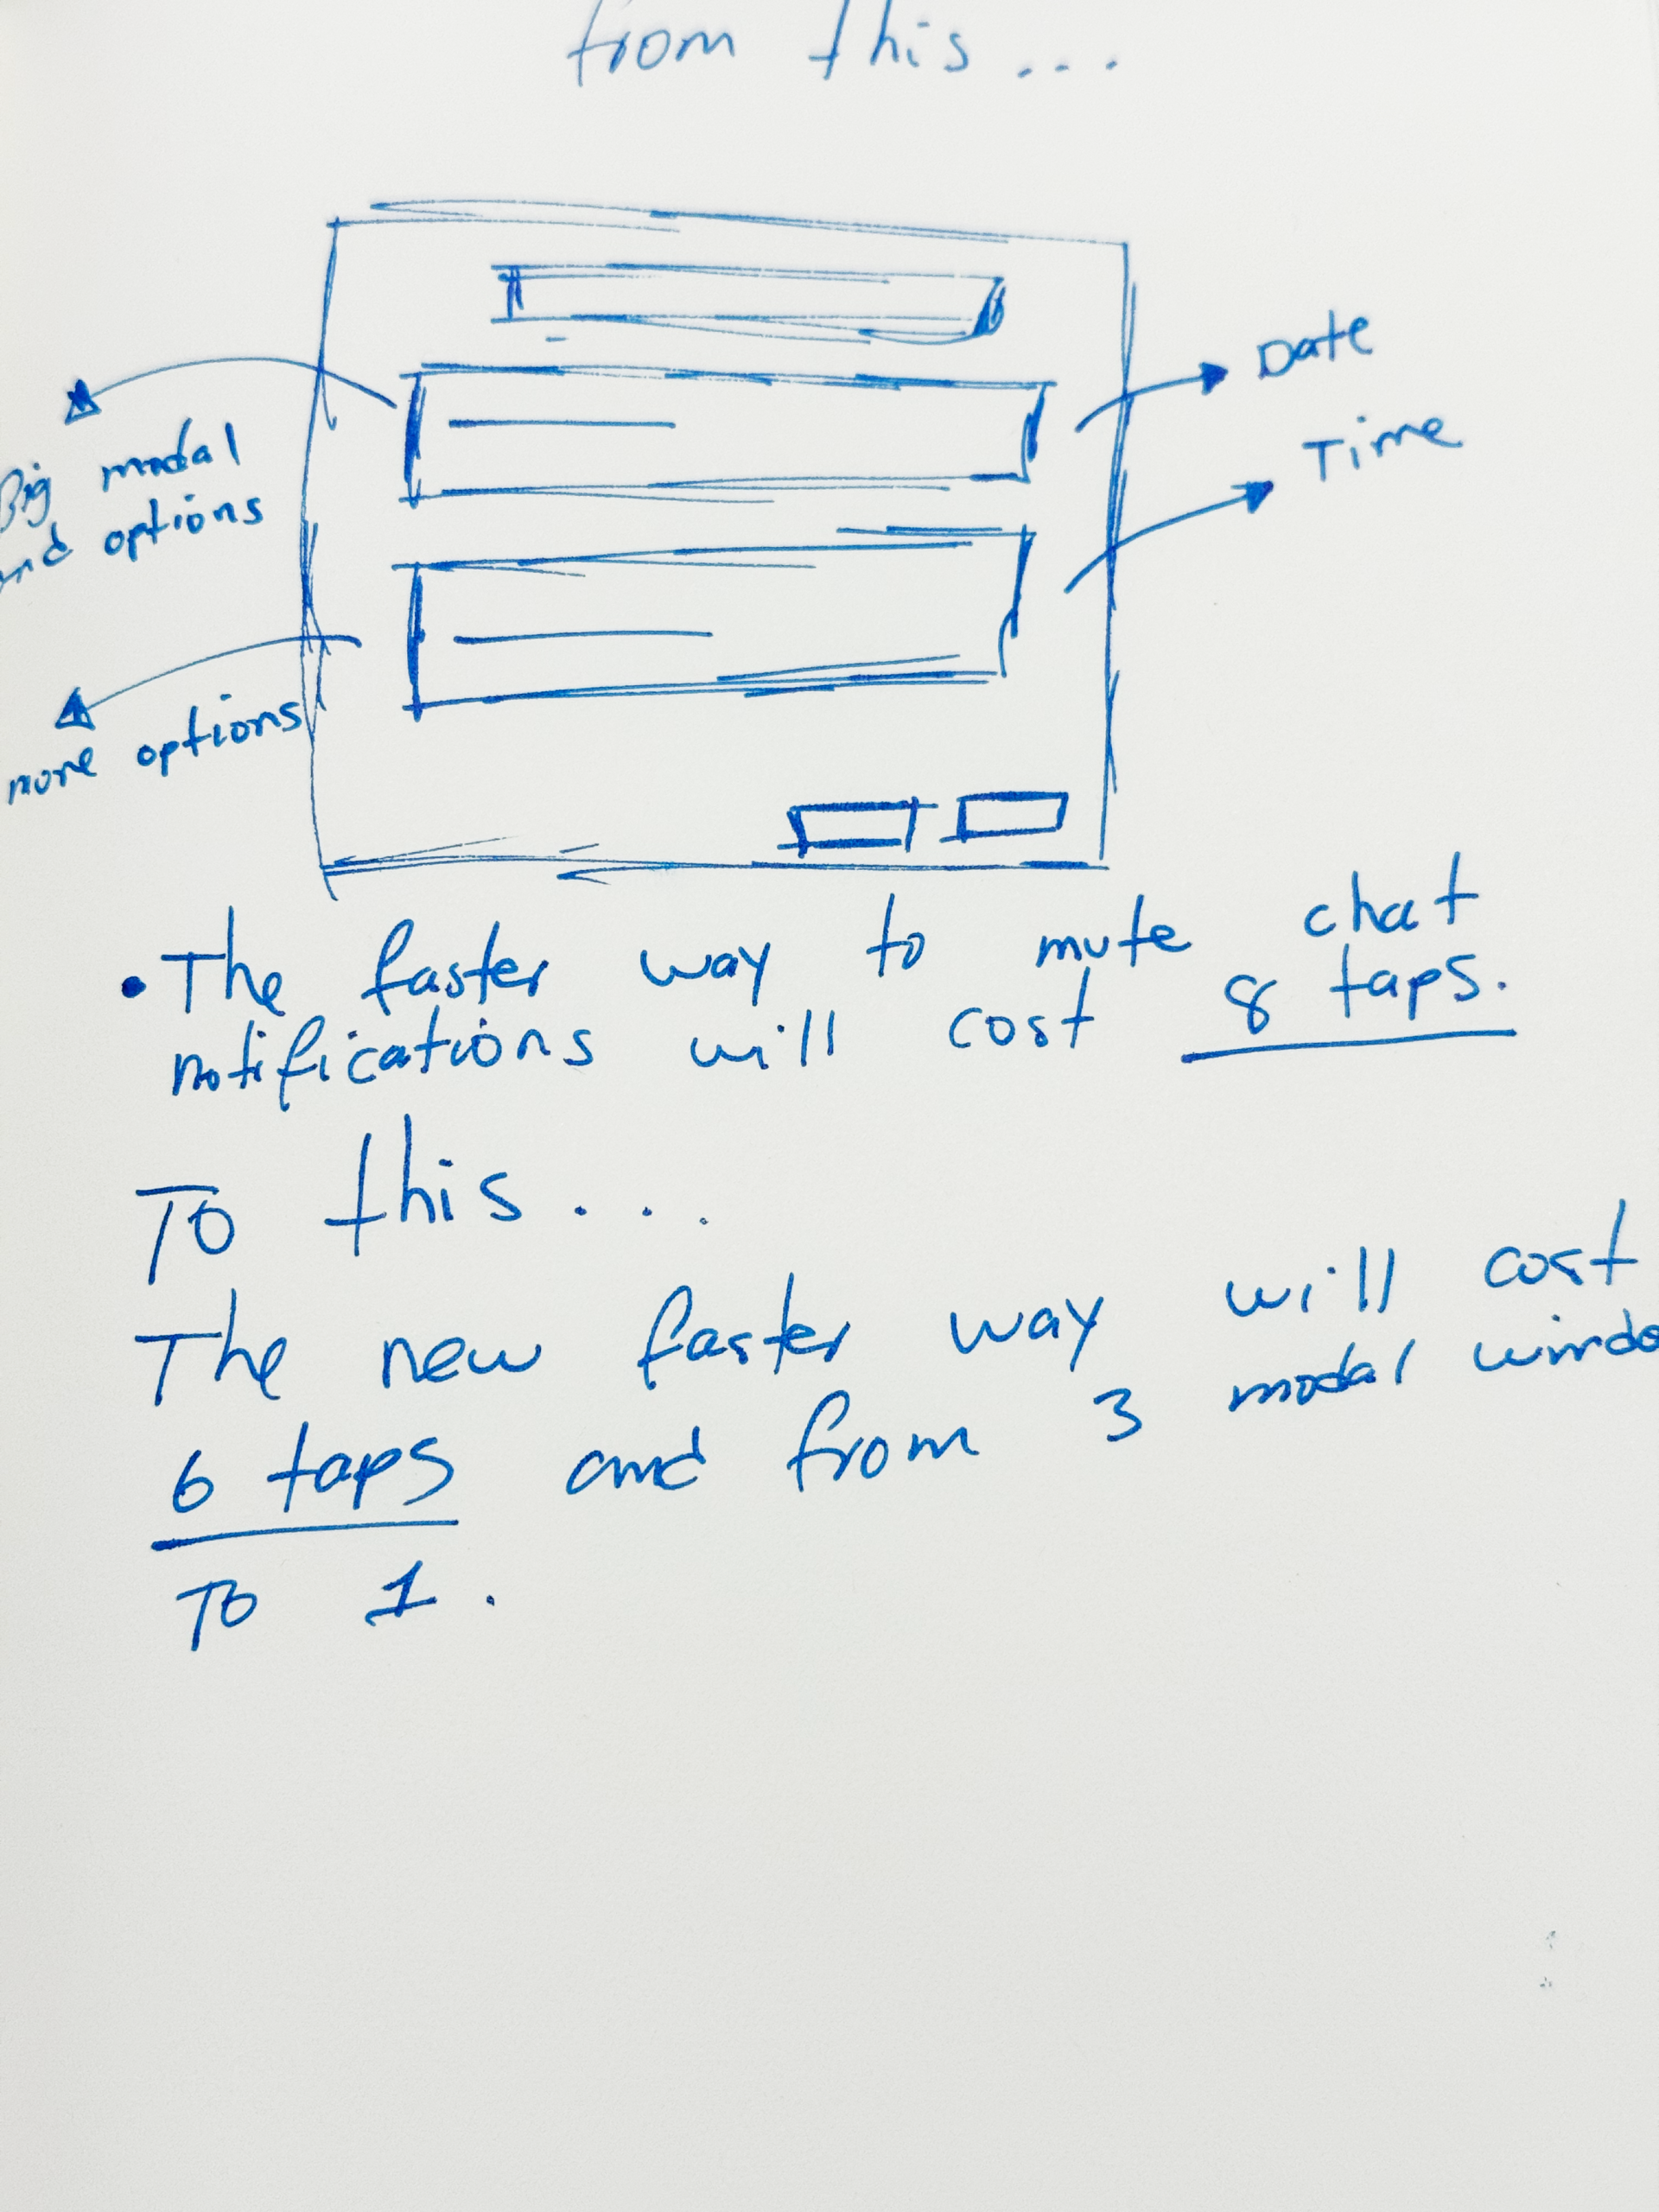 from this...
Date
Time
Big modal
and options
more options
• The faster way to mute chat
notifications will cost 8 taps.
To this...
The new faster way will cost
6 taps and from 3 modal windo
To 1.